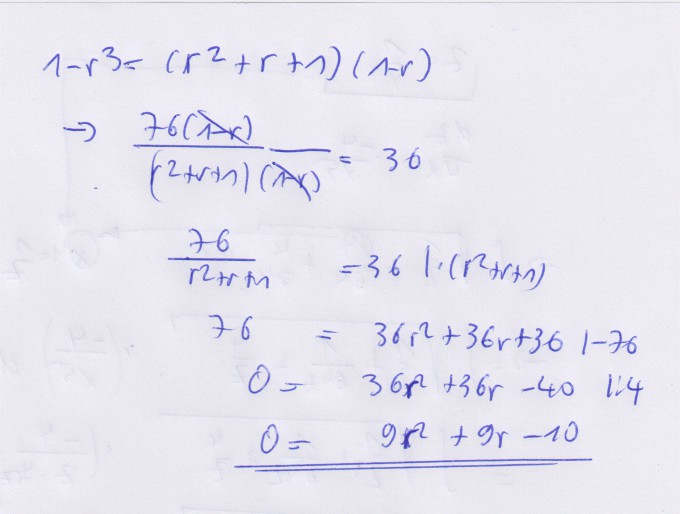 1-r³= (r²+r+1)(1-r)
→ 76(1-r) / (r²+r+1)(1-r) = 36
76 / r²+r+1 =36 |·(r²+r+1)
76 = 36r²+36r+36 |-76
0= 36r²+36r-40 |:4
0= 9r²+9r-10